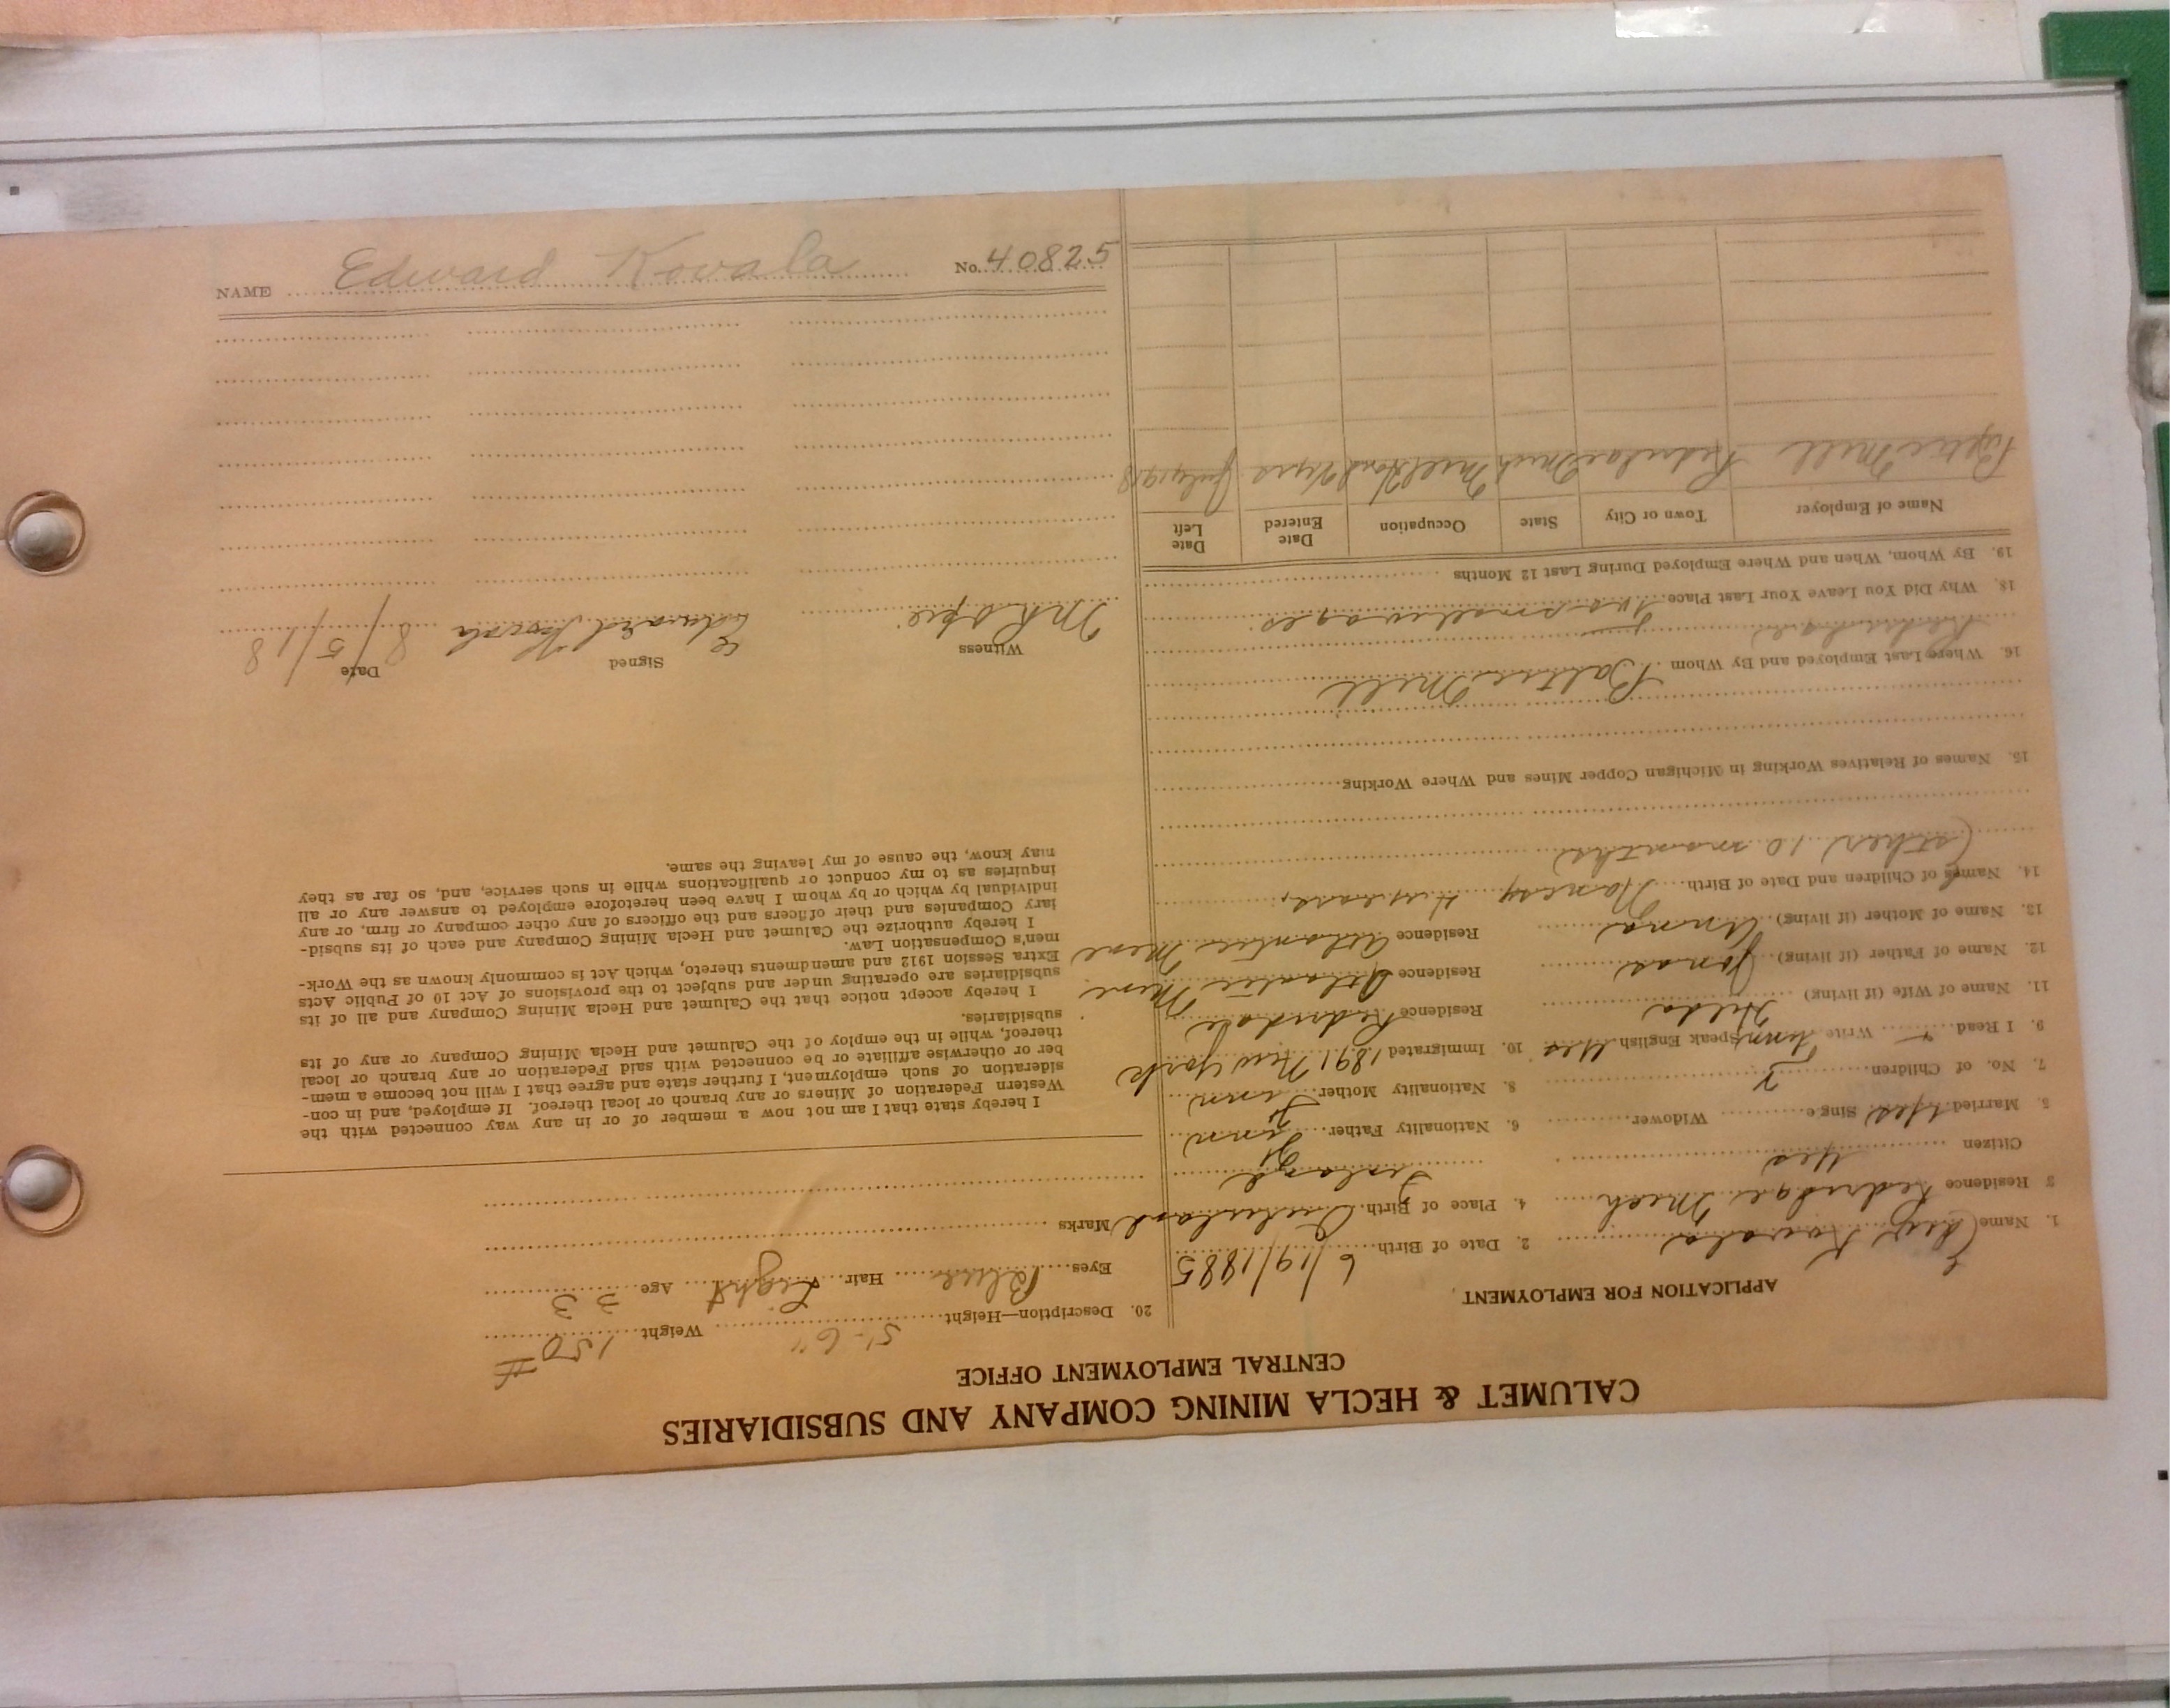 CALUMET & HECLA MINING COMPANY AND SUBSIDIARIES
CENTRAL EMPLOYMENT OFFICE
APPLICATION FOR EMPLOYMENT
1. Name Edw Kovala 2. Date of Birth 6/19/1885
3 Residence Redridge Mich 4. Place of Birth
Citizen Yes Finland
5. Married Yes Single Widower 6. Nationality Father Finn
7. No. of Children 2 8. Nationality Mother Finn
9. I Read Write Finn Speak English Yes 10. Immigrated 1891 New York
11. Name of Wife (if living) Hilda Residence Redridge
12. Name of Father (if living) Jonas Residence Atlantic Mine
13. Name of Mother (if living) Anna Residence Atlantic Mine
14. Names of Children and Date of Birth
(other 10 months)
15. Names of Relatives Working in Michigan Copper Mines and Where Working
16. Where Last Employed and By Whom Baltic Mill
Redridge
18. Why Did You Leave Your Last Place Too small wages.
19. By Whom, When and Where Employed During Last 12 Months
Name of Employer Town or City State Occupation Date Entered Date Left
Baltic Mill Redridge Mich Mill Hand July 1918
20. Description—Height 5'-6" Weight 150 #
Eyes Blue Hair Light Age 33
Marks
I hereby state that I am not now a member of or in any way connected with the
Western Federation of Miners or any branch or local thereof. If employed, and in con-
sideration of such employment, I further state and agree that I will not become a mem-
ber or otherwise affiliate or be connected with said Federation or any branch or local
thereof, while in the employ of the Calumet and Hecla Mining Company or any of its
subsidiaries.
I hereby accept notice that the Calumet and Hecla Mining Company and all of its
subsidiaries are operating under and subject to the provisions of Act 10 of Public Acts
Extra Session 1912 and amendments thereto, which Act is commonly known as the Work-
men's Compensation Law.
I hereby authorize the Calumet and Hecla Mining Company and each of its subsid-
iary Companies and their officers and the officers of any other company or firm, or any
individual by which or by whom I have been heretofore employed to answer any or all
inquiries as to my conduct or qualifications while in such service, and, so far as they
may know, the cause of my leaving the same.
Witness Signed Date
Edward Kovala 8/5/18
NAME Edward Kovala No. 40825